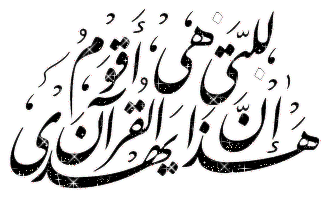 إنّ هذا القرآن يهدى
للتى هى أقوم